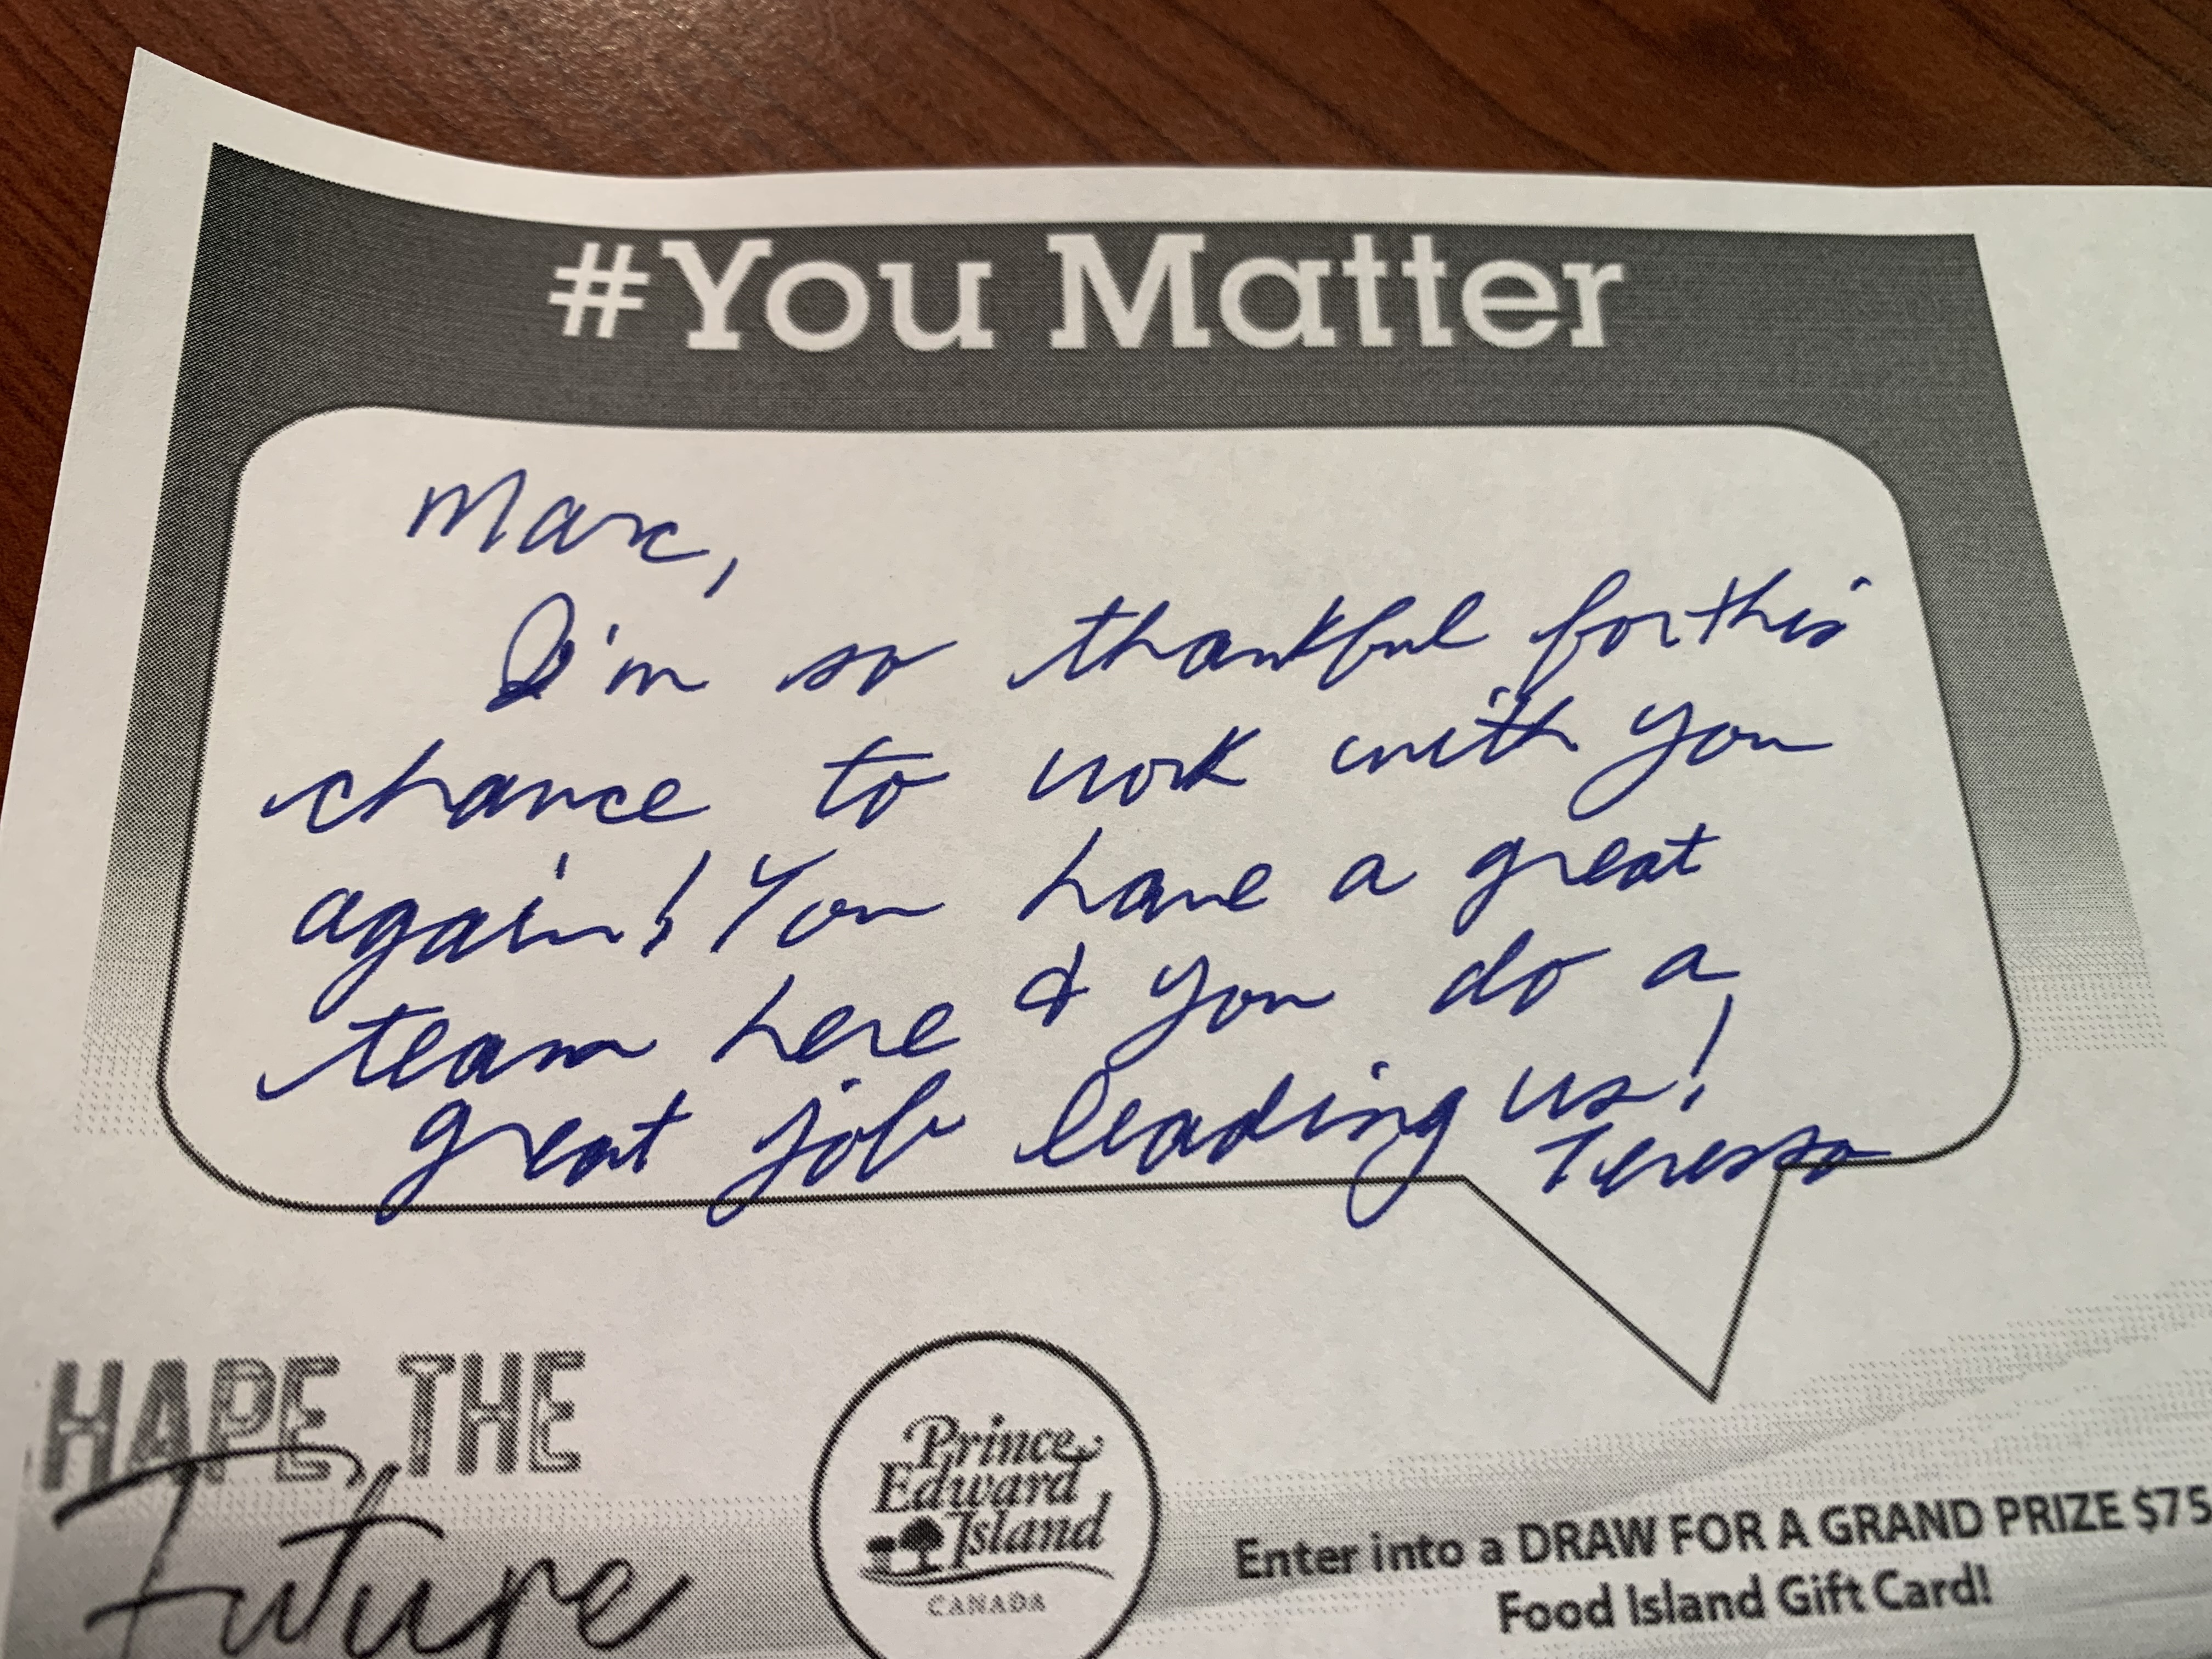 #You Matter
Marc,
I'm so thankful for this
chance to work with you
again! You have a great
team here & you do a
great job leading us!
Teresa
HAPE THE
Future
Prince
Edward
Island
CANADA
Enter into a DRAW FOR A GRAND PRIZE $75
Food Island Gift Card!